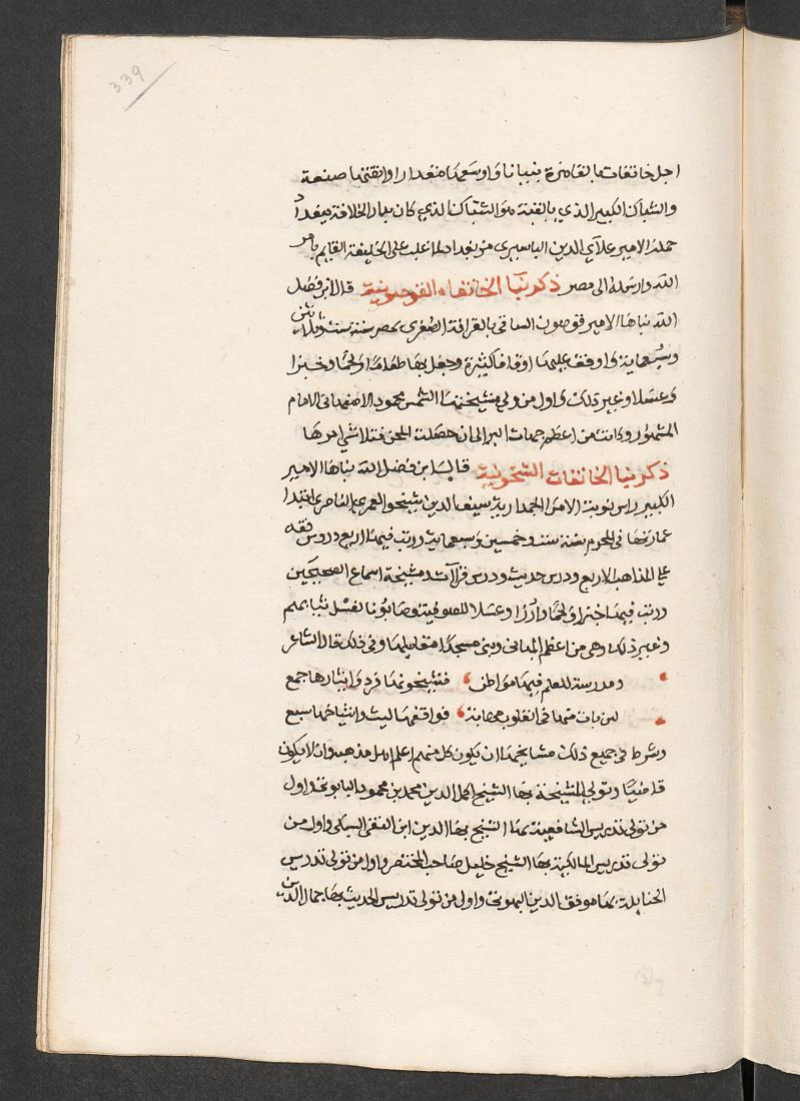 339
اجل خانقات بالقاهرة بنيانا واوسعها مقدارا واتقنها صنعة
والشباك الكبير الذي بالقبة هو الشباك الذي كان بدار الخلافة ببغداد
حمله الامير علاي الدين الباسيري من بغداد لما غلب على الخليفة القايم بامر
الله وارسله الى مصر ذكر بنا الخانقاه القوصونية قال ابن فضل
الله بناها الامير قوصون الساقي بالقرافة الصغرى بمصر سنة ست وثلاثين
وسبعماية واوقف عليها اوقافا كثيرة وجعل بها طعاما ولحما وخبزا
وعسلا وغير ذلك واول من ولي مشيختها الشمس محمود الاصفهاني الامام
المشهور وكانت من اعظم جهات البر الى ان حصلت المحن فتلاشي امرها
ذكر بنا الخانقات الشيخونية قال ابن فضل الله بناها الامير
الكبير راس نوبة الامرا الجمدارية سيف الدين شيخو العمري الناصري ابتدا
عمارتها في المحرم سنة ست وخمسين وسبعماية ورتب فيها اربع دروس فقه
علي المذاهب الاربع ودرس حديث ودرس قراآت ومشيخة اسماع الصحيحين
ورتب فيها خبزا ولحما وارزا وعسلا للصوفية وصابونا لغسل ثيابهم
وغير ذلك وهي من اعظم المباني وبنى مسجدا مقابلها وفي ذلك قال الشاعر
ومدرسة للعلم فيها مواطن فشيخونها فرد وايثارها جمع
لين بات منها في القلوب مهابة فواقفها ليث واشياخها سبع
وشرط في جميع ذلك مشايخها ان يكون كل منهم اعلم اهل مذهبه وان لا يكون
قاضيا وتولي المشيخة بها الشيخ اكمل الدين محمد بن محمود البابوتي واول
من تولى تدريس الشافعية بها الشيخ بها الدين ابن التقي السبكي واول من
تولى تدريس المالكية بها الشيخ خليل صاحب المختصر واول من تولى تدريس
الحنابلة بها موفق الدين البهوتي واول من تولى تدريس الحديث بها جمال الدين